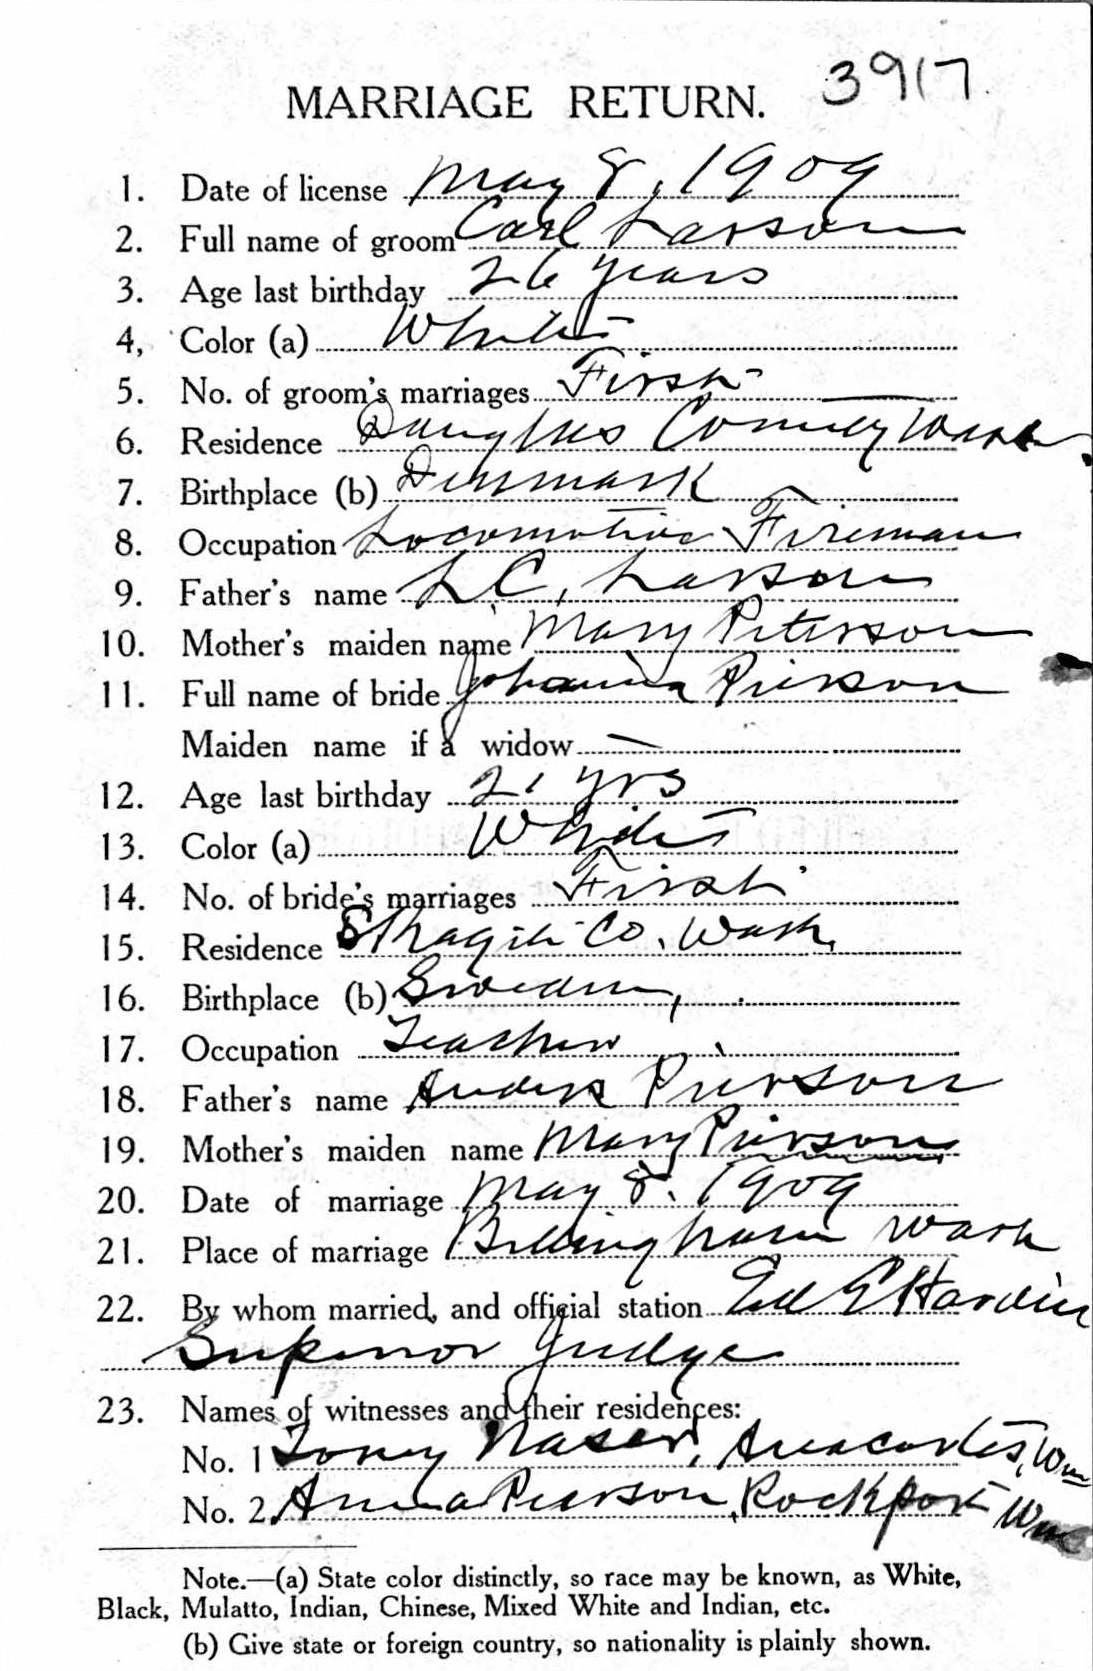 3917
MARRIAGE RETURN.
1. Date of license May 8, 1909
2. Full name of groom Carl Larson
3. Age last birthday 26 years
4, Color (a) White
5. No. of groom's marriages First
6. Residence Douglas County Wash.
7. Birthplace (b) Denmark
8. Occupation Locomotive Fireman
9. Father's name L.C. Larson
10. Mother's maiden name Mary Peterson
11. Full name of bride Johanna Pierson
Maiden name if a widow —
12. Age last birthday 21 yrs
13. Color (a) White
14. No. of bride's marriages First
15. Residence Skagit Co. Wash.
16. Birthplace (b) Sweden,
17. Occupation Teacher
18. Father's name Anders Pierson
19. Mother's maiden name Mary Pierson
20. Date of marriage May 8. 1909
21. Place of marriage Bellingham Wash
22. By whom married, and official station Ed E Hardin
Superior Judge
23. Names of witnesses and their residences:
No. 1 Toney Naser, Anacortes, Wn
No. 2. Anna Pearson, Rockport Wn
Note.—(a) State color distinctly, so race may be known, as White,
Black, Mulatto, Indian, Chinese, Mixed White and Indian, etc.
(b) Give state or foreign country, so nationality is plainly shown.